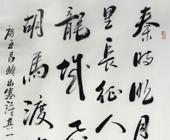 秦時明月
里長征人
龍城飛
胡馬渡
王昌齡出塞詩其一